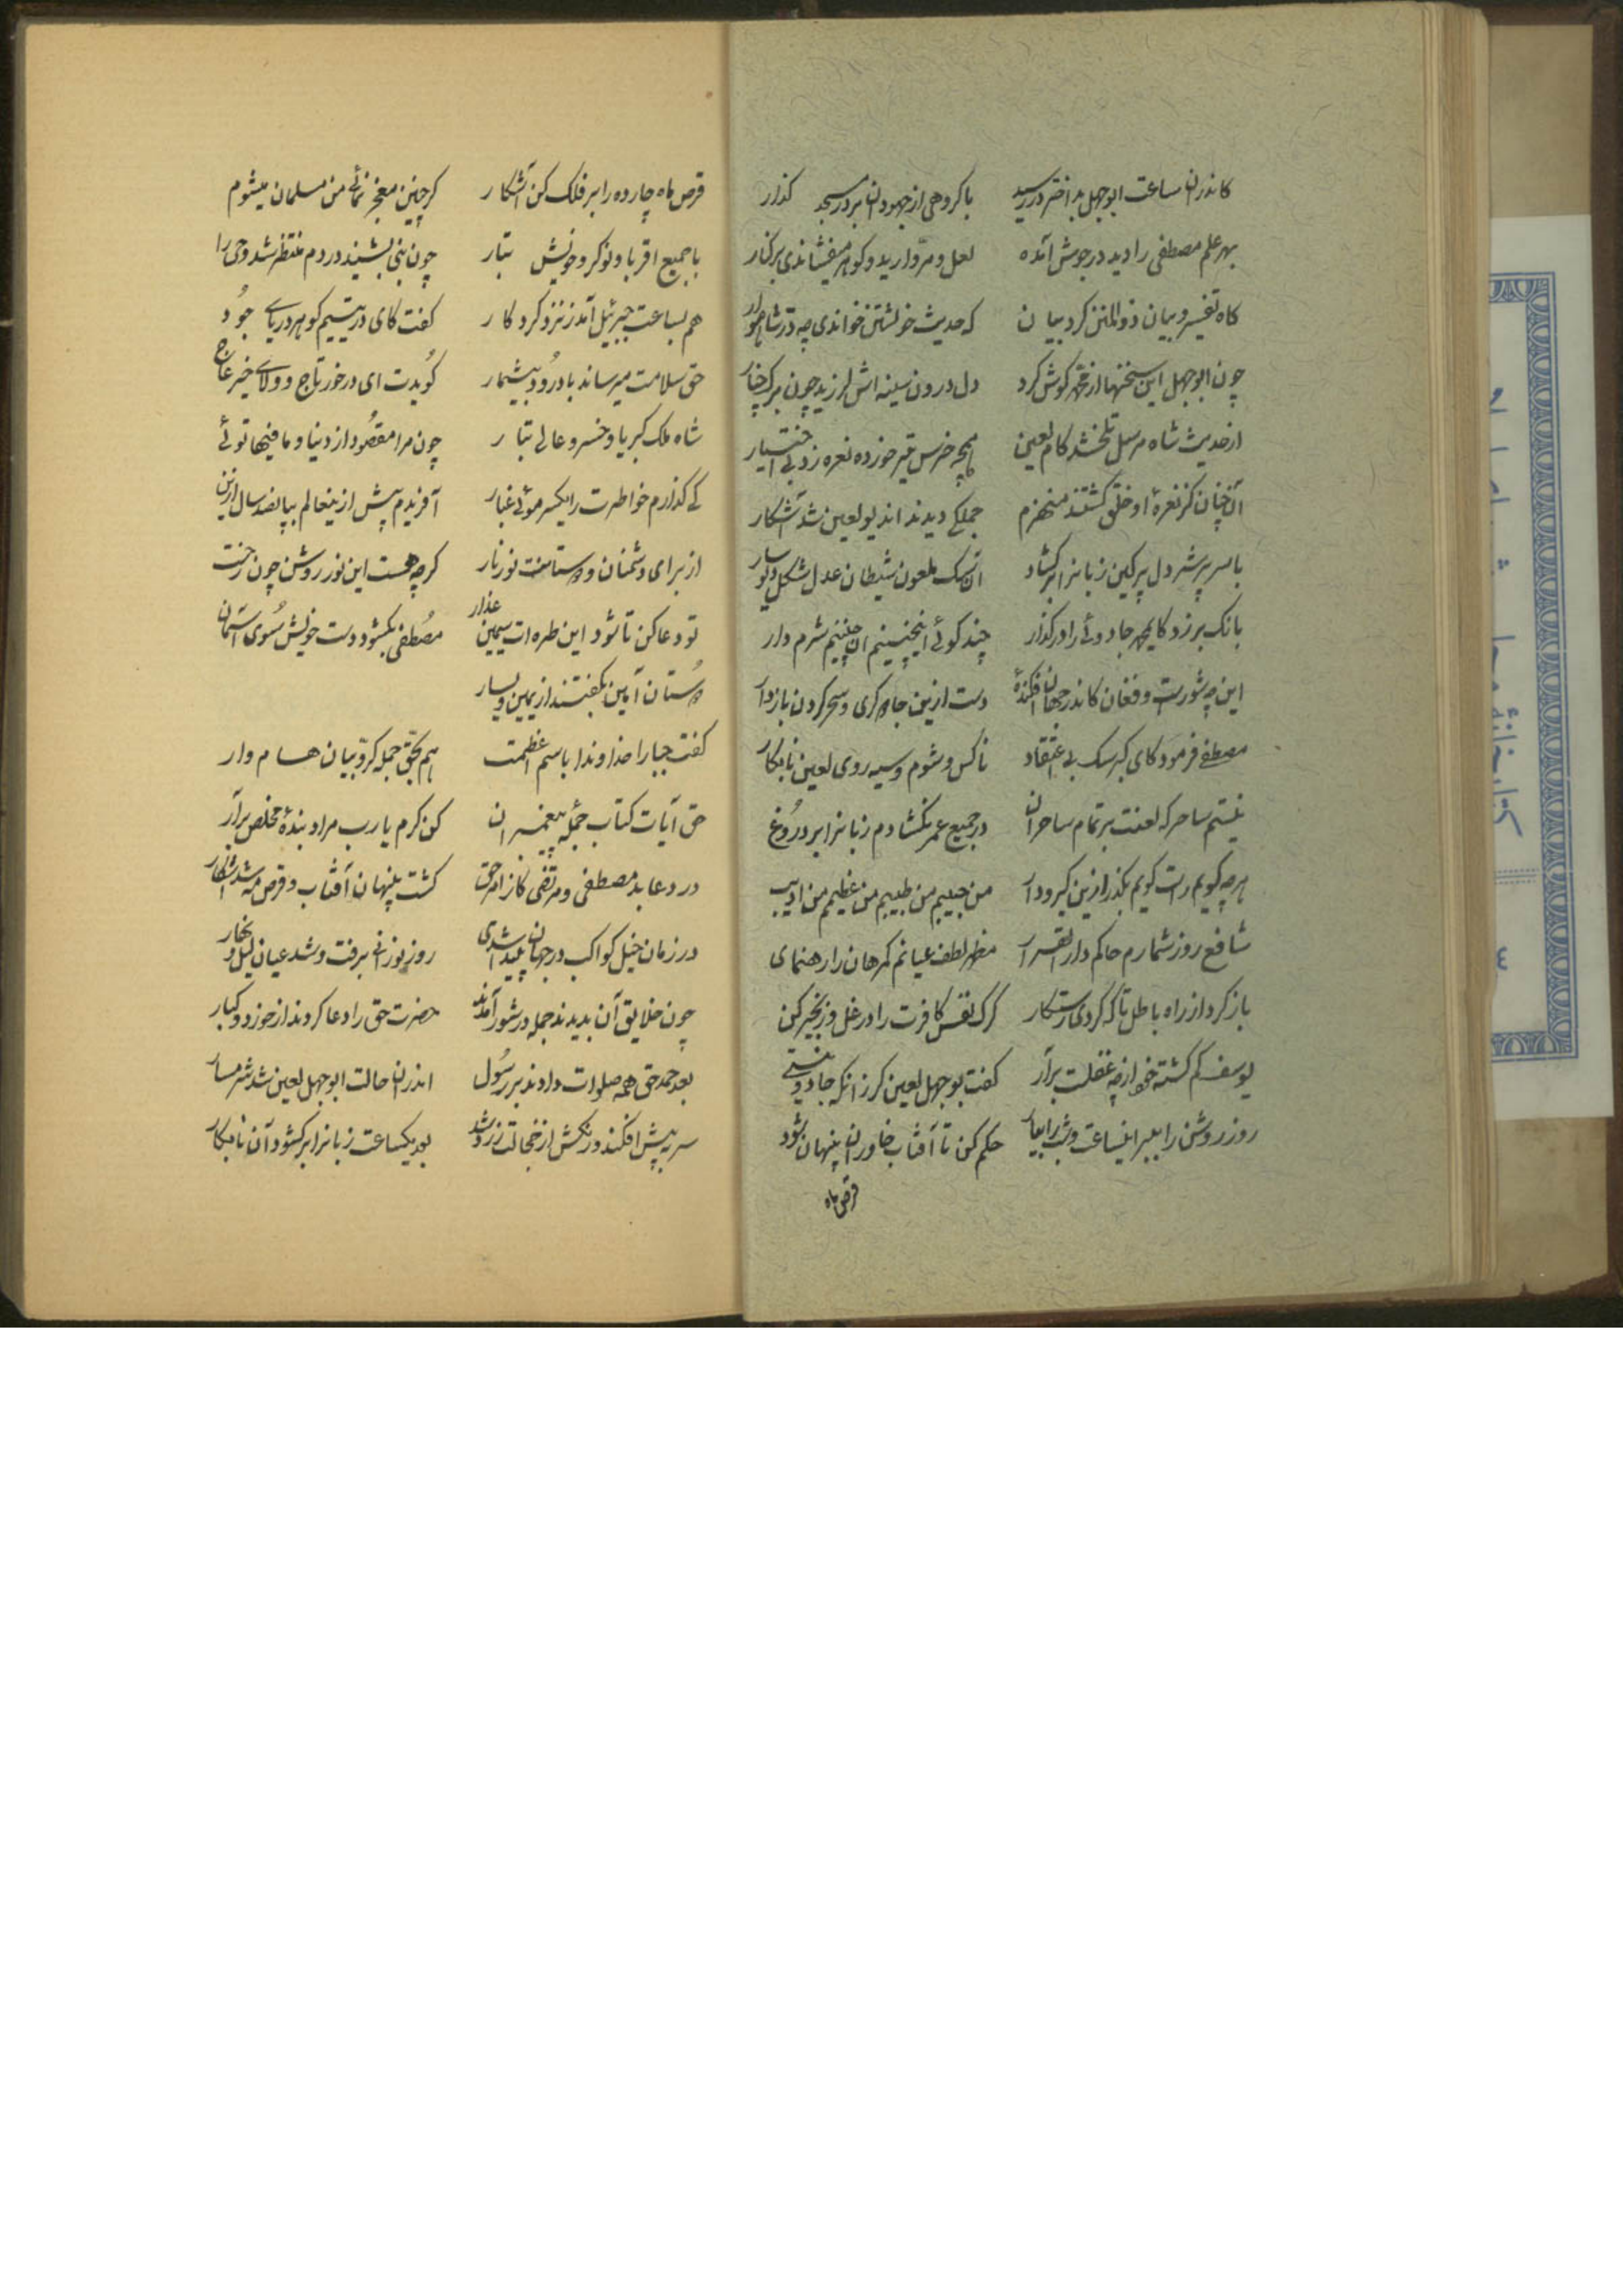 کاندران ساعت ابوجهل بد اختر در رسید باکروهی از جهودان بر در مسجد کذار
بهر علم مصطفی را دید در جوش آمده لعل و مروارید و کوهر میفشاندی بر کنار
کاه تفسیر و بیان ذوالمنن کرد بیان که حدیث خویشتن خواندی چه در شاهوار
چون ابوجهل این سخنها از محمد کوش کرد دل درون سینه اش لرزید چون برک چنار
از حدیث شاه مرسل تلخ شد کام لعین همچه خرس تیر خورده نعره زد بی اختیار
آن چنان کز نعرۀ او خلق کشتند منهزم جملکی دیدند اندیو لعین شد آشکار
با سر پر شر دل پر کین زبانرا بر کشاد ان سک ملعون شیطان عدل شکل دیو سار
بانک برزد کای محمد جادوئی را در کذار چند کوئی اینچنینم ان چنینم شرم دار
این چه شورست و فغان کاندر جهان افکندۀ دست ازین جادوکری و سحر کردن باز دار
مصطفی فرمود کای کبر سک بی اعتقاد ناکس و شوم و سیه روی لعین نابکار
نیستم ساحر که لعنت بر تمام ساحران در جمیع عمر نکشادم زبانرا بر دروغ
هر چه کویم راست کویم بکذر ازین کیرودار من حبیبم من طبیبم من عظیم من ادیب
شافع روز شمارم حاکم دار القرار مظهر لطف عیانم کمرهان را رهنمای
باز کرد از راه باطل تا که کردی رستکار کرک نفس کافرت را در غل و زنجیر کن
یوسف کم کشته خود از چه غفلت برآر کفت بوجهل لعین کر زانکه جادو نیستی
روز روشن را ببر اینساعت و شب را بیار حکم کن تا آفتاب خاوران پنهان شود
قرص ماه
قرص ماه چارده را بر فلک کن آشکار کر چنین معجز نمائی من مسلمان میشوم
با جمیع اقربا و نوکر و خویش تبار چون نبی بشنید در دم منتظر شد وحی را
هم بساعت جبرئیل آمد ز نزد کردکار کفت کای در یتیم کوهر دریای جود
حق سلامت میرساند با درود بیشمار کویدت ای در خور تاج و ولای خیر عاج
شاه ملک کبریا و خسرو عالی تبار چون مرا مقصود از دنیا و مافیها توئی
کی کذارم خواطرت را یکسر موئی غبار آفریدم پیش از ینعالم بپانصد سال ازین
از برای دشمنان و دوستانت نور نار کرچه هست این نور روشن چون رخت
تو دعا کن تا شود این طره ات سیمین عذار مصطفی بکشود دست خویش سوی آسمان
دوستان آمین بکفتند از یمین و یسار
کفت جبارا خداوندا باسم اعظمت هم بحق جمله کروبیان هسام وار
حق آیات کتاب جملۀ پیغمبران کن کرم یا رب مراد بندۀ مخلص برآر
در دعا بد مصطفی و مرتضی کاز امر حق کشت پنهان آفتاب و قرص مه شد آشکار
در زمان خیل کواکب در جهان پیدا شدی روز نورانی برفت و شد عیان لیل و نهار
چون خلایق آن بدیدند جمله در شور آمدند حضرت حق را دعا کردند از خورد و کبار
بعد حمد حق همه صلوات دادند بر رسول اندران حالت ابوجهل لعین شد شرمسار
سر به پیش افکند و رنکش از خجالت زرد شد بعد یکساعت زبانرا بر کشود آن نابکار